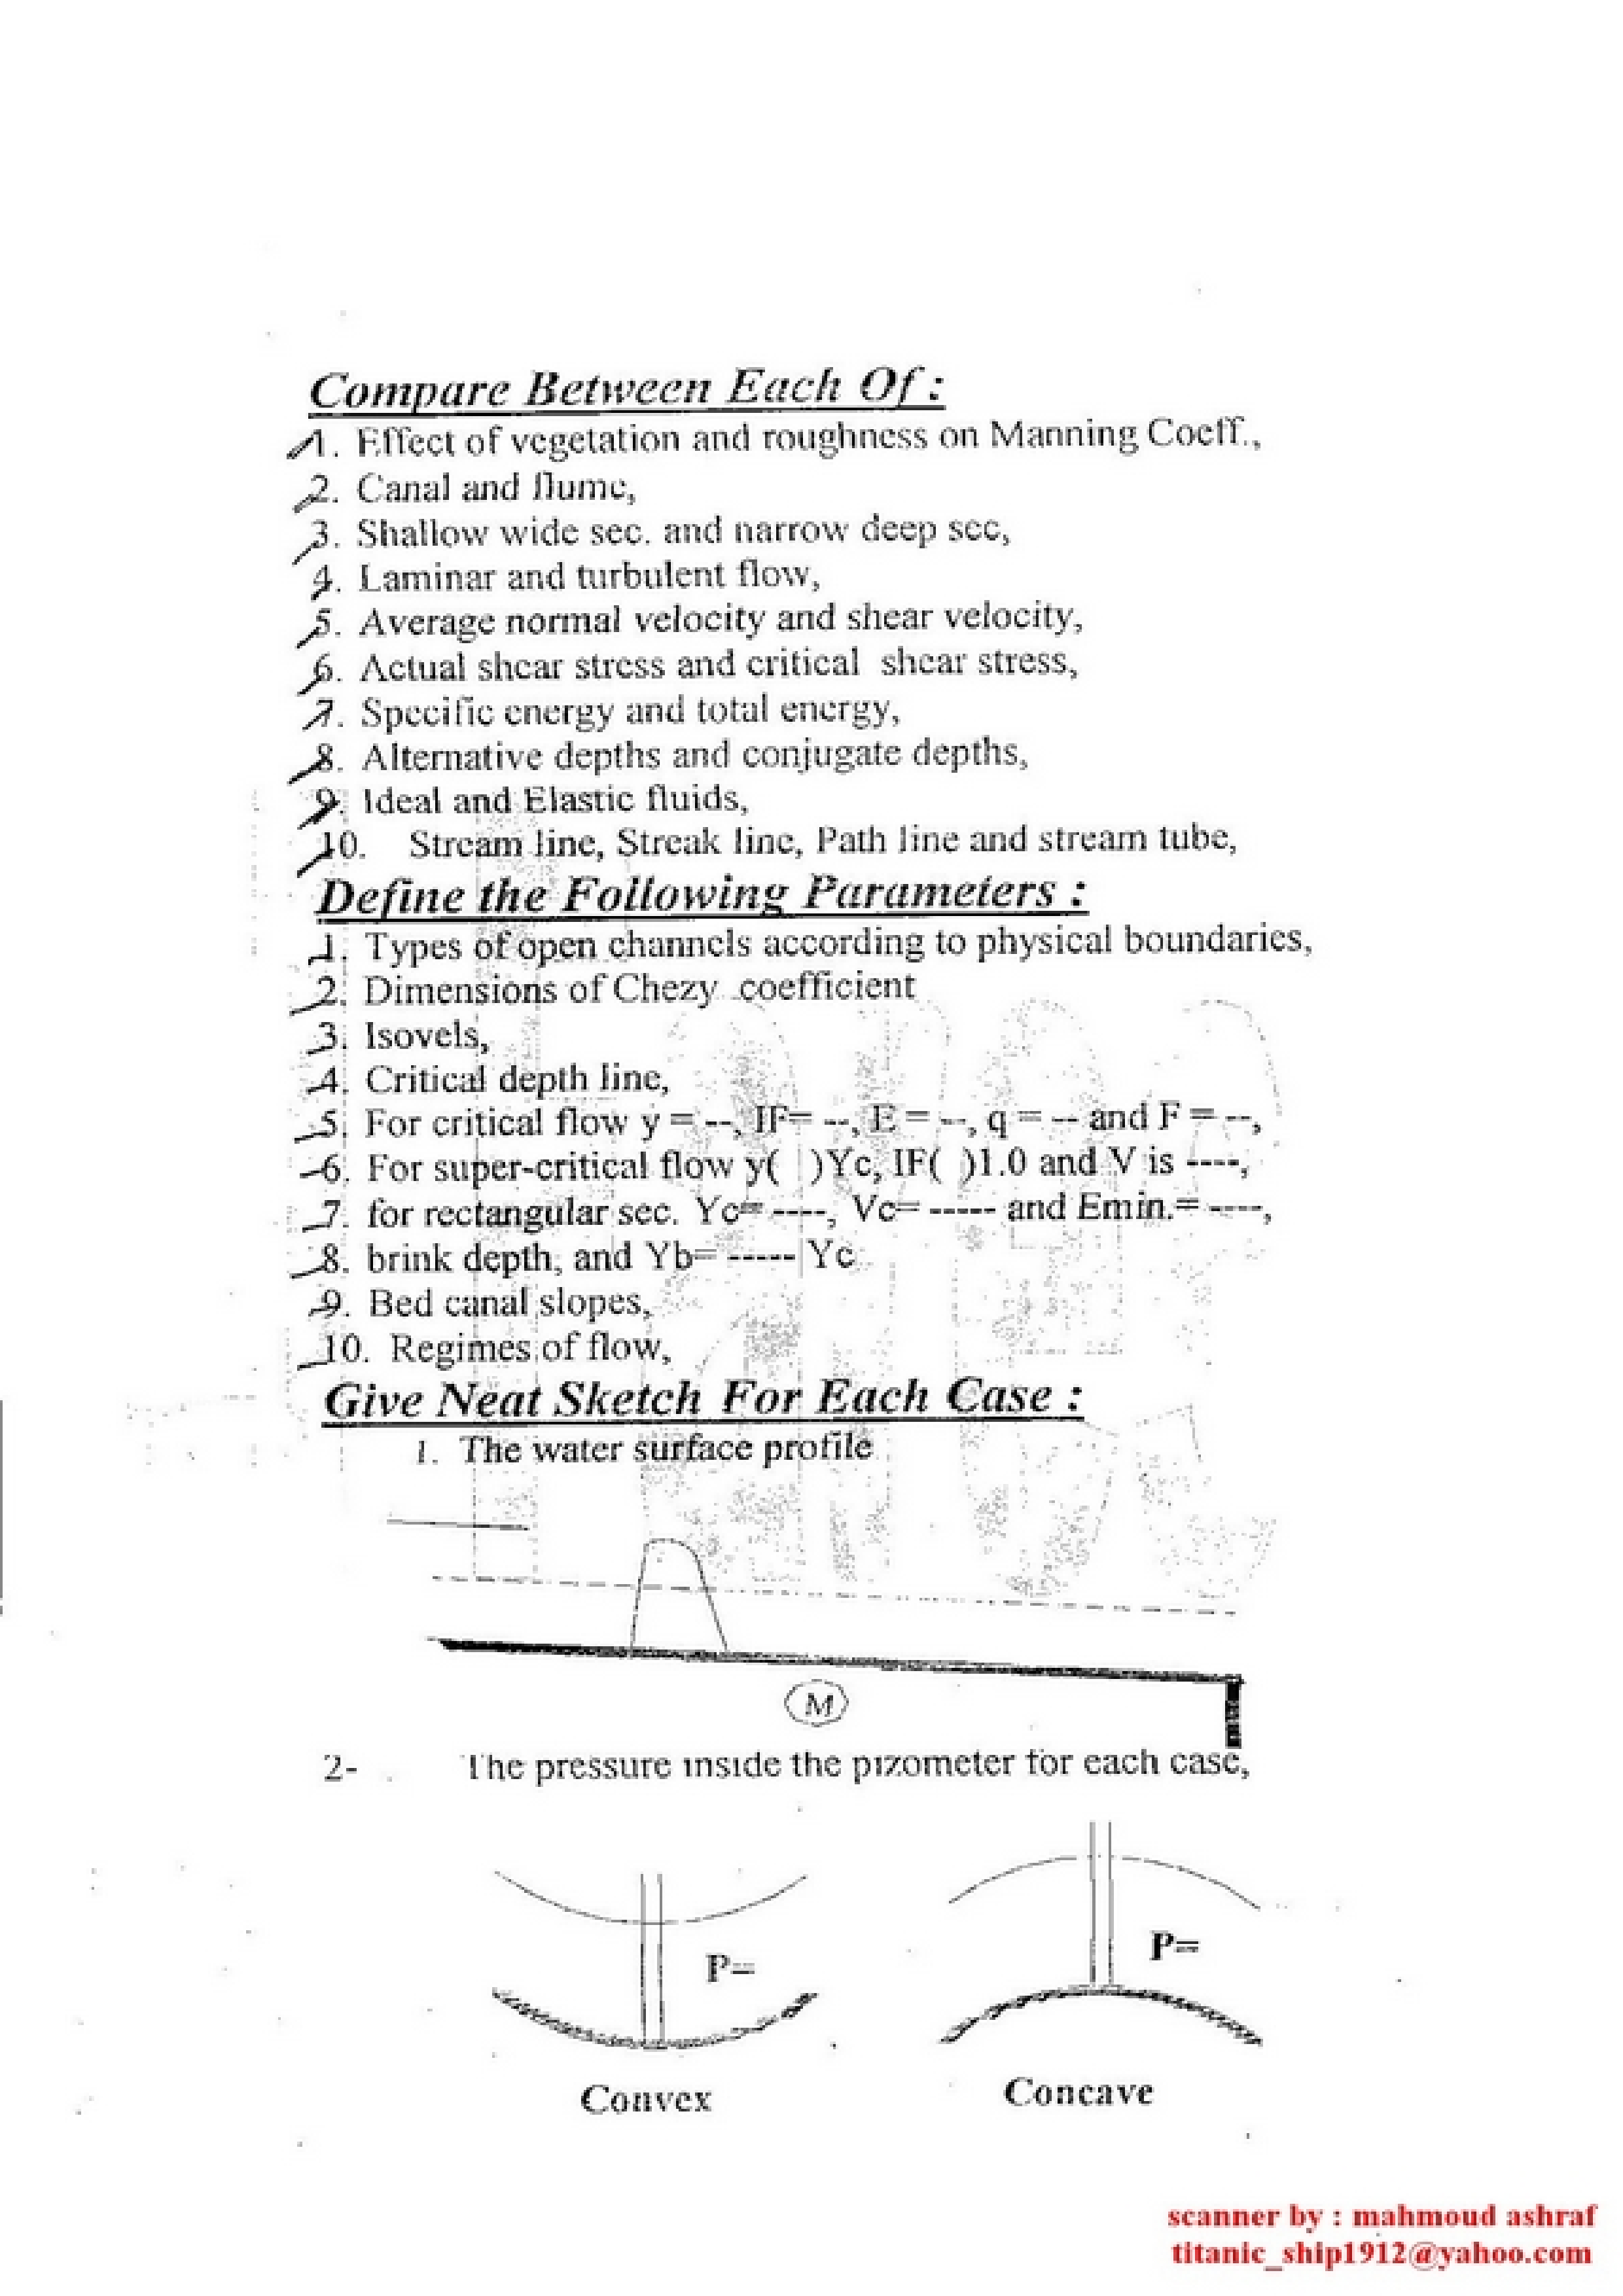 Compare Between Each Of :
1. Effect of vegetation and roughness on Manning Coeff.,
2. Canal and flume,
3. Shallow wide sec. and narrow deep sec,
4. Laminar and turbulent flow,
5. Average normal velocity and shear velocity,
6. Actual shear stress and critical shear stress,
7. Specific energy and total energy,
8. Alternative depths and conjugate depths,
9. Ideal and Elastic fluids,
10. Stream line, Streak line, Path line and stream tube,
Define the Following Parameters :
1. Types of open channels according to physical boundaries,
2. Dimensions of Chezy coefficient
3. Isovels,
4. Critical depth line,
5. For critical flow y = --, IF= --, E = --, q = -- and F = --,
6. For super-critical flow y( )Yc, IF( )1.0 and V is ----,
7. for rectangular sec. Yc= ----, Vc= ----- and Emin.= ----,
8. brink depth, and Yb= ----- Yc
9. Bed canal slopes,
10. Regimes of flow,
Give Neat Sketch For Each Case :
1. The water surface profile
M
2- The pressure inside the pizometer for each case,
P= P=
Convex Concave
scanner by : mahmoud ashraf
titanic_ship1912@yahoo.com